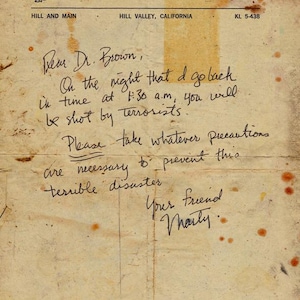 HILL AND MAIN HILL VALLEY, CALIFORNIA KL 5-438
Dear Dr. Brown,
On the night that I go back
in time at 1:30 a.m, you will
be shot by terrorists.
Please take whatever precautions
are necessary to prevent this
terrible disaster
Your Friend
Marty.